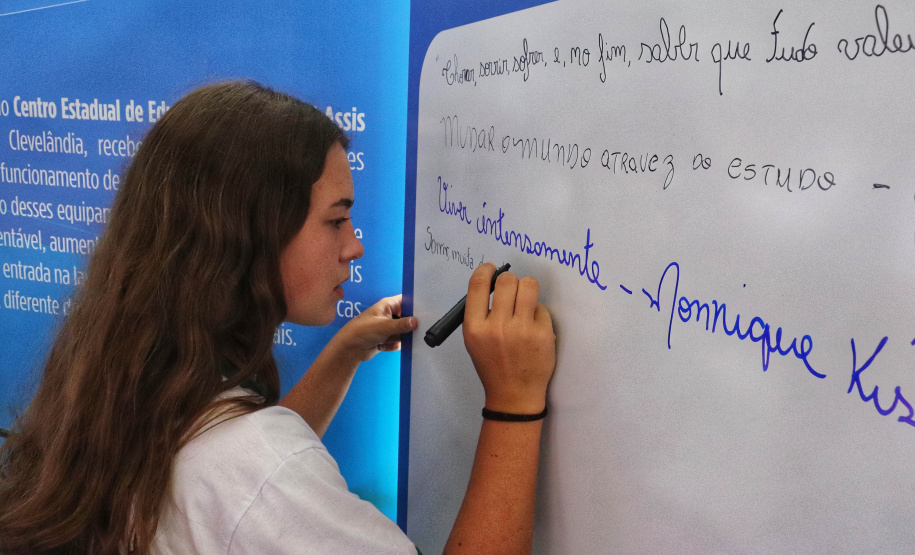 o Centro Estadual de Edu Assis
Clevelândia, receb es
funcionamento de
o desses equipar e
entável, aument
entrada na la is
diferente d cas
ais.
"Chorar, sorrir, sofrer, e, no fim, saber que tudo valeu
MUDAR O MUNDO ATRAVEZ DO ESTUDO -
Viver intensamente -- Monnique Kis
Some, muita